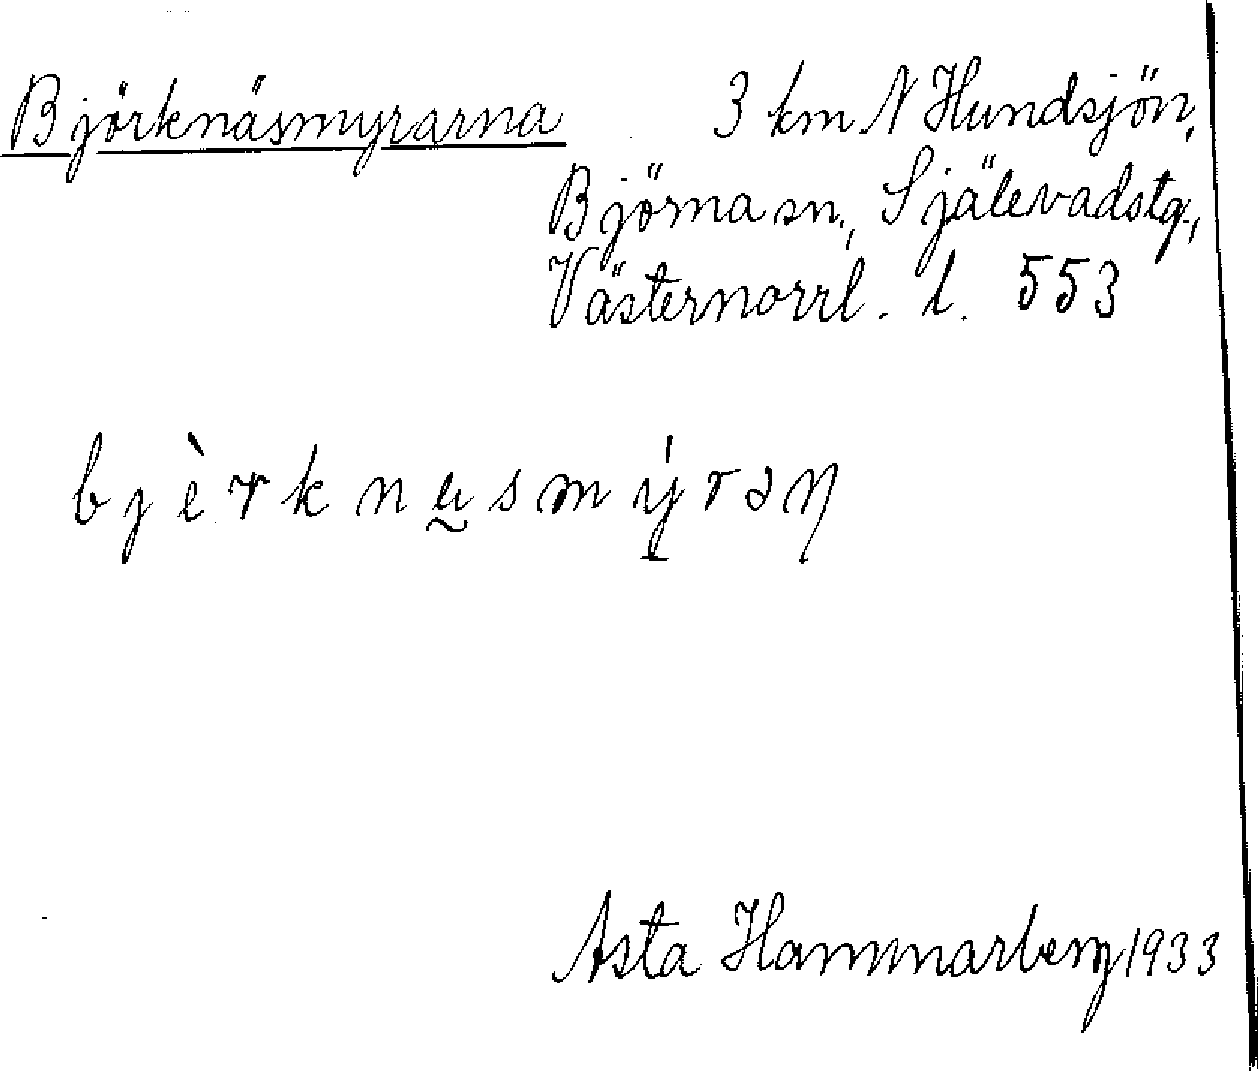 Björknäsmyrarna 3 km N Hundsjön,
Björna sn., Själevadstg.,
Västernorrl. l. 553
bjèrknæ̰smý̱rəŋ
Asta Hammarberg 1933